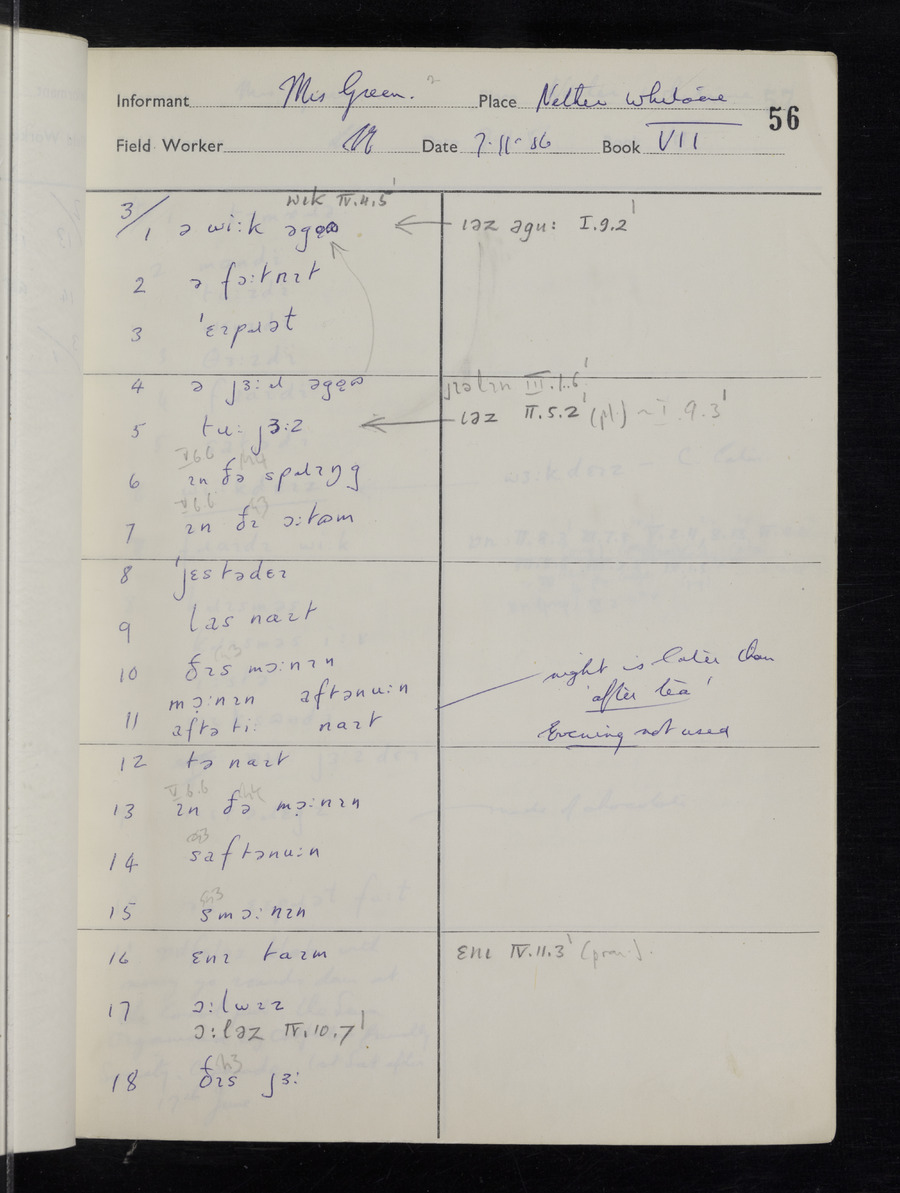 Informant Mis Green. Place Nether Whitacre
56
Field Worker Date 7·11·56 Book VII
wɪk IV.4.5'
3/
1 ə wi:k əgəʊ ← ɪəz əgu: I.9.2'
2 ə fɔ:tnɪt
3 'ɛɪpɹət
4 ə ȷɜ:ɹ əgəʊ ȷɪəlɪn III.1.6'
5 tu: ȷɜ:z ← ɪəz II.5.2' (pl.) ~ I.9.3'
V.6.6
6 ɪn ðə spɹɪŋg
V.6.6
7 ɪn ðɪ ɔ:təm
8 'ȷɛstədɛɪ
9 las naɪt
10 ðɪs mɔ:nɪn
mɔ:nɪn aftənu:n
11 aftə ti: naɪt
night is later than
'after tea'
Evening not used
12 tə naɪt
V.6.6
13 ɪn ðə mɔ:nɪn
14 saftənu:n
15 smɔ:nɪn
16 ɛnɪ taɪm ɛnɪ IV.11.3' (pron.).
17 ɔ:lwɪz
ɔ:ləz IV.10.7'
18 ðɪs ȷɜ: